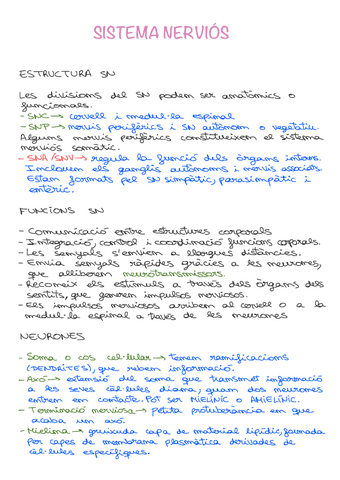 SISTEMA NERVIÓS
ESTRUCTURA SN
Les divisions del SN poden ser anatòmics o
funcionals.
- SNC → cervell i medul·la espinal
- SNP → nervis perifèrics i SN autònom o vegetatiu.
Alguns nervis perifèrics constitueixen el sistema
nerviós somàtic.
- SNA/SNV → regula la funció dels òrgans interns.
Inclouen els ganglis autònoms i nervis associats.
Estan formats pel SN simpàtic, parasimpàtic i
entèric.
FUNCIONS SN
- Comunicació entre estructures corporals
- Integració, control i coordinació funcions corporals.
- Les senyals s'envien a llargues distàncies.
- Envia senyals ràpides gràcies a les neurones,
que alliberen neurotransmissors.
- Recorneix els estímuls a través dels òrgans dels
sentits, que generen impulsos nerviosos.
- Els impulsos nerviosos arriben al cervell o a la
medul·la espinal a través de les neurones
NEURONES
- Soma o cos cel·lular → tenen ramificacions
(DENDRITES), que reben informació.
- Axó → extensió del soma que transmet informació
a les seves cèl·lules diana, quan dos neurones
entren en contacte. Pot ser MIELÍNIC o AMIELÍNIC.
- Terminació nerviosa → petita protuberància en que
acaba un axó.
- Mielina → gruixuda capa de material lipídic, formada
per capes de membrana plasmàtica derivades de
cèl·lules específiques.